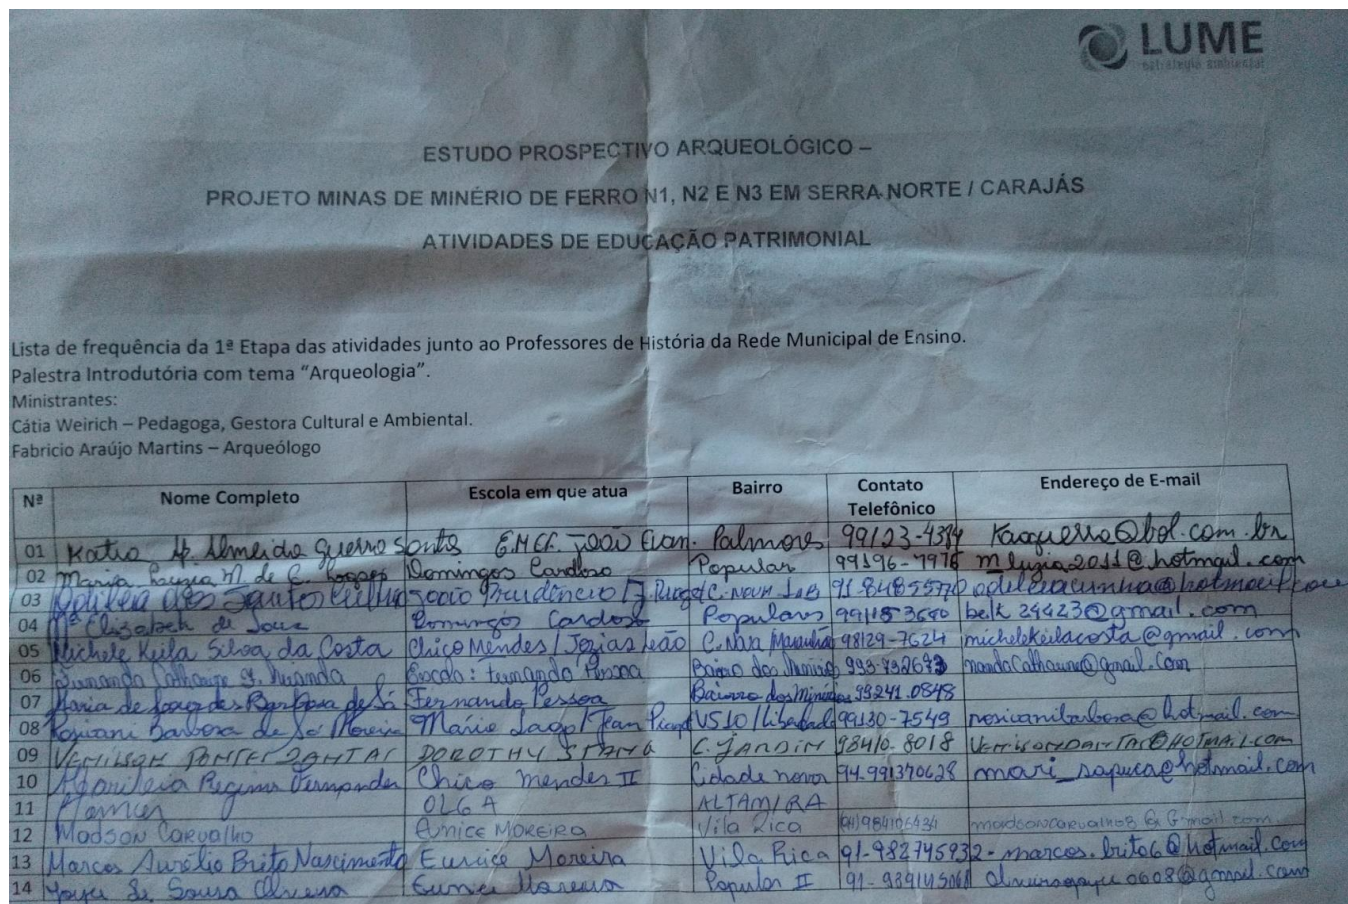 LUME
estratégia ambiental
ESTUDO PROSPECTIVO ARQUEOLÓGICO –
PROJETO MINAS DE MINÉRIO DE FERRO N1, N2 E N3 EM SERRA NORTE / CARAJÁS
ATIVIDADES DE EDUCAÇÃO PATRIMONIAL
Lista de frequência da 1ª Etapa das atividades junto ao Professores de História da Rede Municipal de Ensino.
Palestra Introdutória com tema “Arqueologia”.
Ministrantes:
Cátia Weirich – Pedagoga, Gestora Cultural e Ambiental.
Fabricio Araújo Martins – Arqueólogo
Nª Nome Completo Escola em que atua Bairro Contato Telefônico Endereço de E-mail
01 Katia Ap. Almeida Guerra Santos E.M.E.F. JOÃO Evan. Palmares
02 Maria Luzia M. de C. Domingos Cardoso Popular 99196-7976 mluzia2011@hotmail.com
03 dos Santos João Prudêncio
04 Mª Elisabeth de Domingos Cardoso Populares belk.24423@gmail.com
05 Michele Keila Silva da Costa Chico Mendes / Jozias Leão C. Nova 98129-7624 michelekeilacosta@gmail.com
06 Miranda Escola: Fernando Pessoa Bairro dos Minérios
07 Maria de Barbosa de Sá Fernando Pessoa Bairro dos Minérios 99241.0848
08 Rosivani Barbosa de Sá Moreira Mário Lago / Jean Piaget VS10 / Liberdade 99130-7549 rosivanibarbosa@hotmail.com
09 DANTAS DOROTHY STANG C. JARDIM 98410-8018
10 Regina Fernandes Chico Mendes II Cidade nova 94-991370628 mari_sapuca@hotmail.com
11 OLGA ALTAMIRA
12 Madson Carvalho Eunice MOREIRA Vila Rica madsoncarvalho8@Gmail.com
13 Marcos Aurélio Brito Nascimento Eunice Moreira Vila Rica 91-982745932- marcos.brito6@hotmail.com
14 de Sousa Oliveira Eunice Moreira Popular II